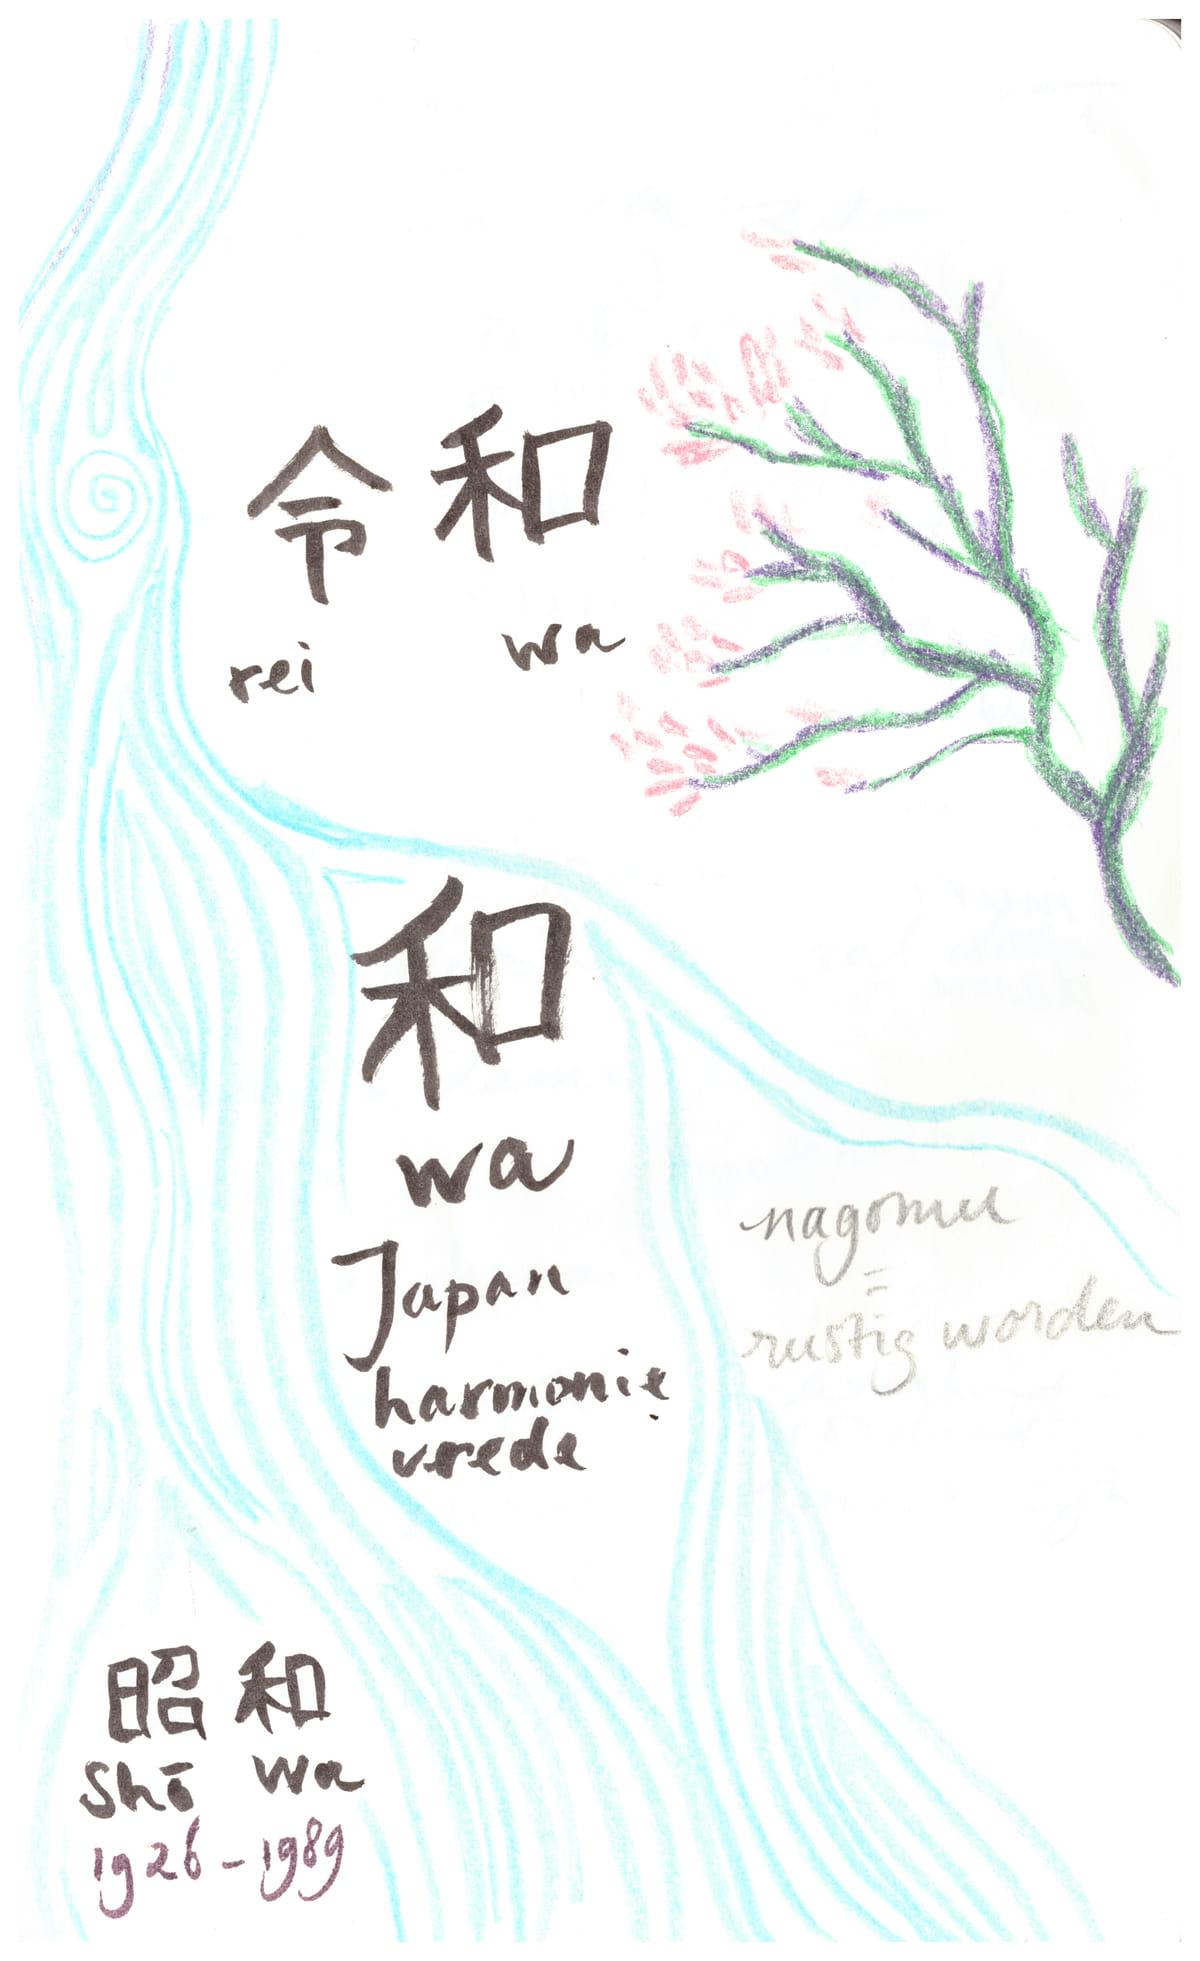 令和
rei wa
和
wa
Japan
harmonie
vrede
nagomu
=
rustig worden
昭和
Shō wa
1926-1989